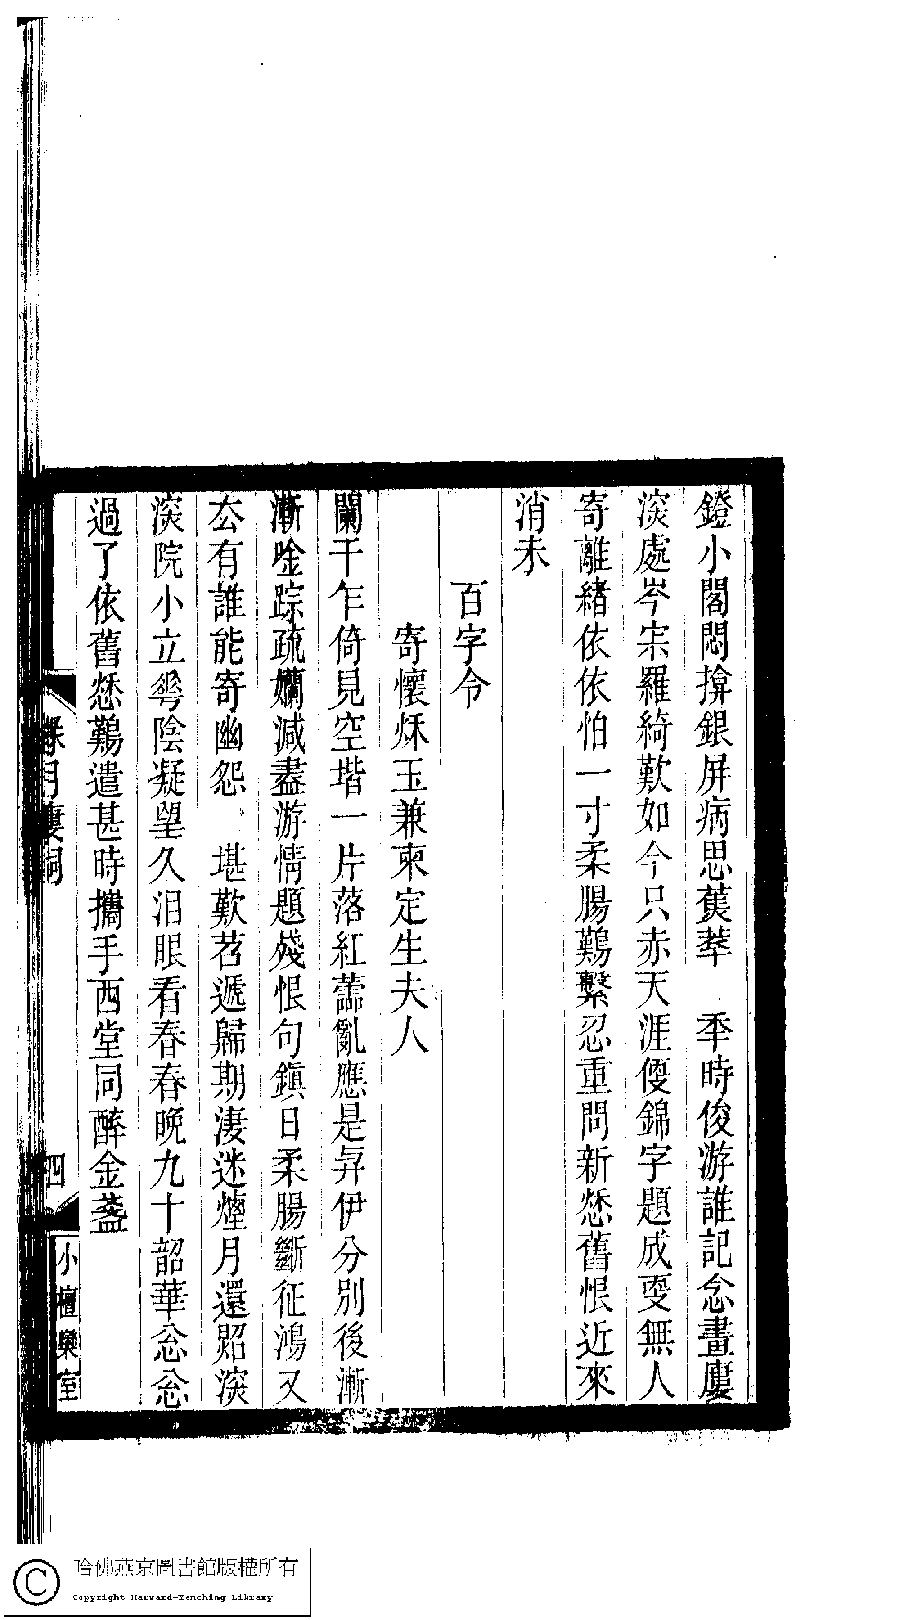 鐙小閣悶揜銀屏病思蕉萃　季時俊游誰記念畫廔
深處岑宗羅綺歎如今只赤天涯偄錦字題成耎無人
寄離緒依依怕一寸柔腸鷄繫忍重問新愁舊恨近來
消未
百字令
寄懷秌玉兼柬定生夫人
闌干乍倚見空堦一片落紅蕭亂應是弅伊分別後漸
漸唫踪疏嬾減盡游情題殘恨句鎮日柔腸斷征鴻又
厺有誰能寄幽怨　堪歎苕遞歸期淒迷煙月還照深
深院小立蕚陰凝望久泪眼看春春晚九十韶華忩忩
過了依舊愁鷄遣甚時攜手西堂同醉金盞
月廔詞
四
小檀欒室
哈佛燕京圖書館版權所有
Copyright Harvard-Yenching Library